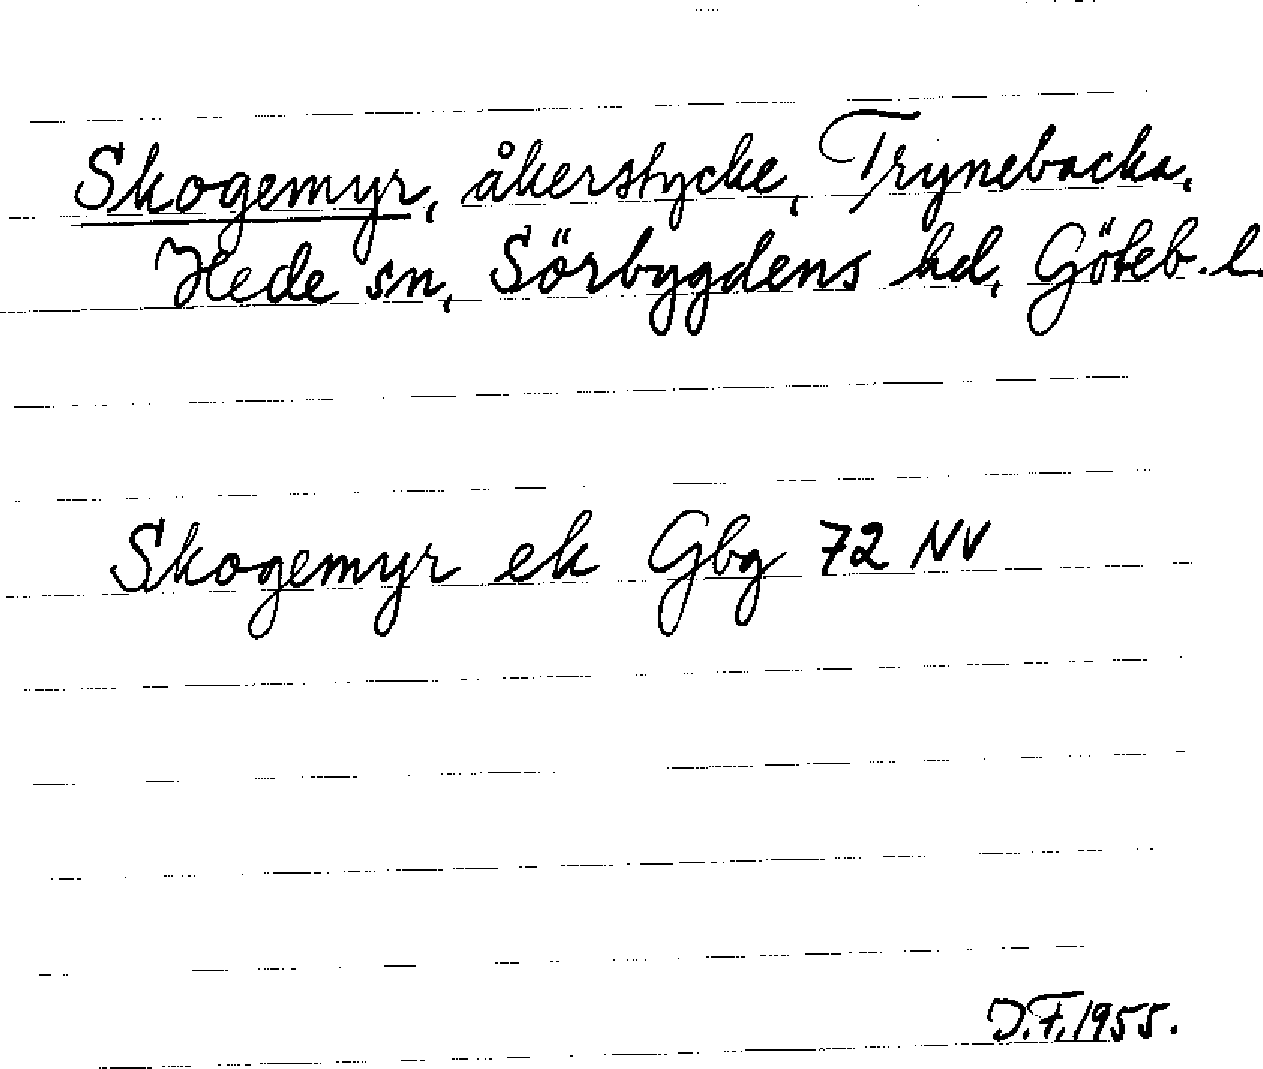 Skogemyr, åkerstycke, Trynebacka,
Hede sn, Sörbygdens hd, Göteb. l.
Skogemyr ek Gbg 72 NV
J.F. 1955.